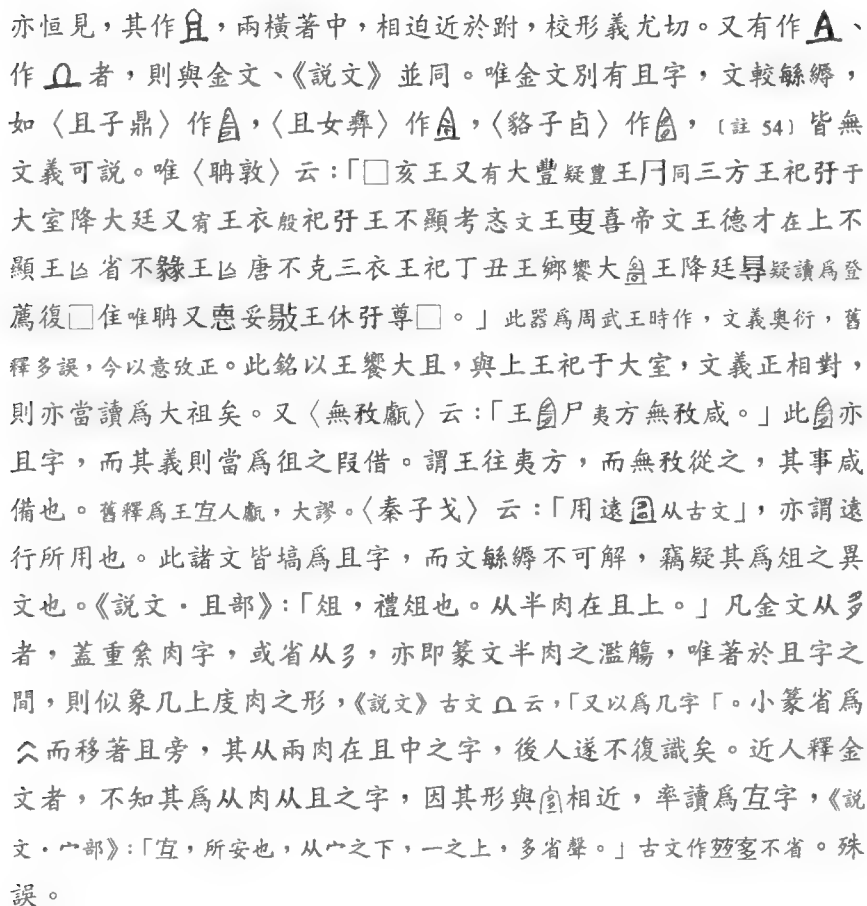 亦恒見，其作，兩橫著中，相迫近於跗，校形義尤切。又有作、
作者，則與金文、《說文》並同。唯金文別有且字，文較緐縟，
如〈且子鼎〉作，〈且女彝〉作，〈貉子卣〉作，〔註 54〕皆無
文義可說。唯〈聃敦〉云：「□亥王又有大豐疑豊王同三方王祀㺬于
大室降大廷又宥王衣殷祀㺬王不顯考文王喜帝文王德才在上不
顯王省不王唐不克三衣王祀丁丑王鄉饗大王降廷疑讀爲登
薦復□隹唯聃又妥王休㺬尊□。」此器爲周武王時作，文義奧衍，舊
釋多誤，今以意攷正。此銘以王饗大且，與上王祀于大室，文義正相對，
則亦當讀爲大祖矣。又〈無敄甗〉云：「王尸夷方無敄咸。」此亦
且字，而其義則當爲徂之叚借。謂王往夷方，而無敄從之，其事咸
備也。舊釋爲王宐人甗，大謬。〈秦子戈〉云：「用逺从古文」，亦謂逺
行所用也。此諸文皆塙爲且字，而文緐縟不可解，竊疑其爲俎之異
文也。《說文‧且部》：「俎，禮俎也。从半肉在且上。」凡金文从
者，蓋重絫肉字，或省从，亦即篆文半肉之濫觴，唯著於且字之
間，則似象几上庋肉之形，《說文》古文云，「又以爲几字「。小篆省爲
而移著且旁，其从兩肉在且中之字，後人遂不復識矣。近人釋金
文者，不知其爲从肉从且之字，因其形與相近，率讀爲宐字，《說
文‧宀部》：「宐，所安也，从宀之下，一之上，多省聲。」古文作不省。殊
誤。